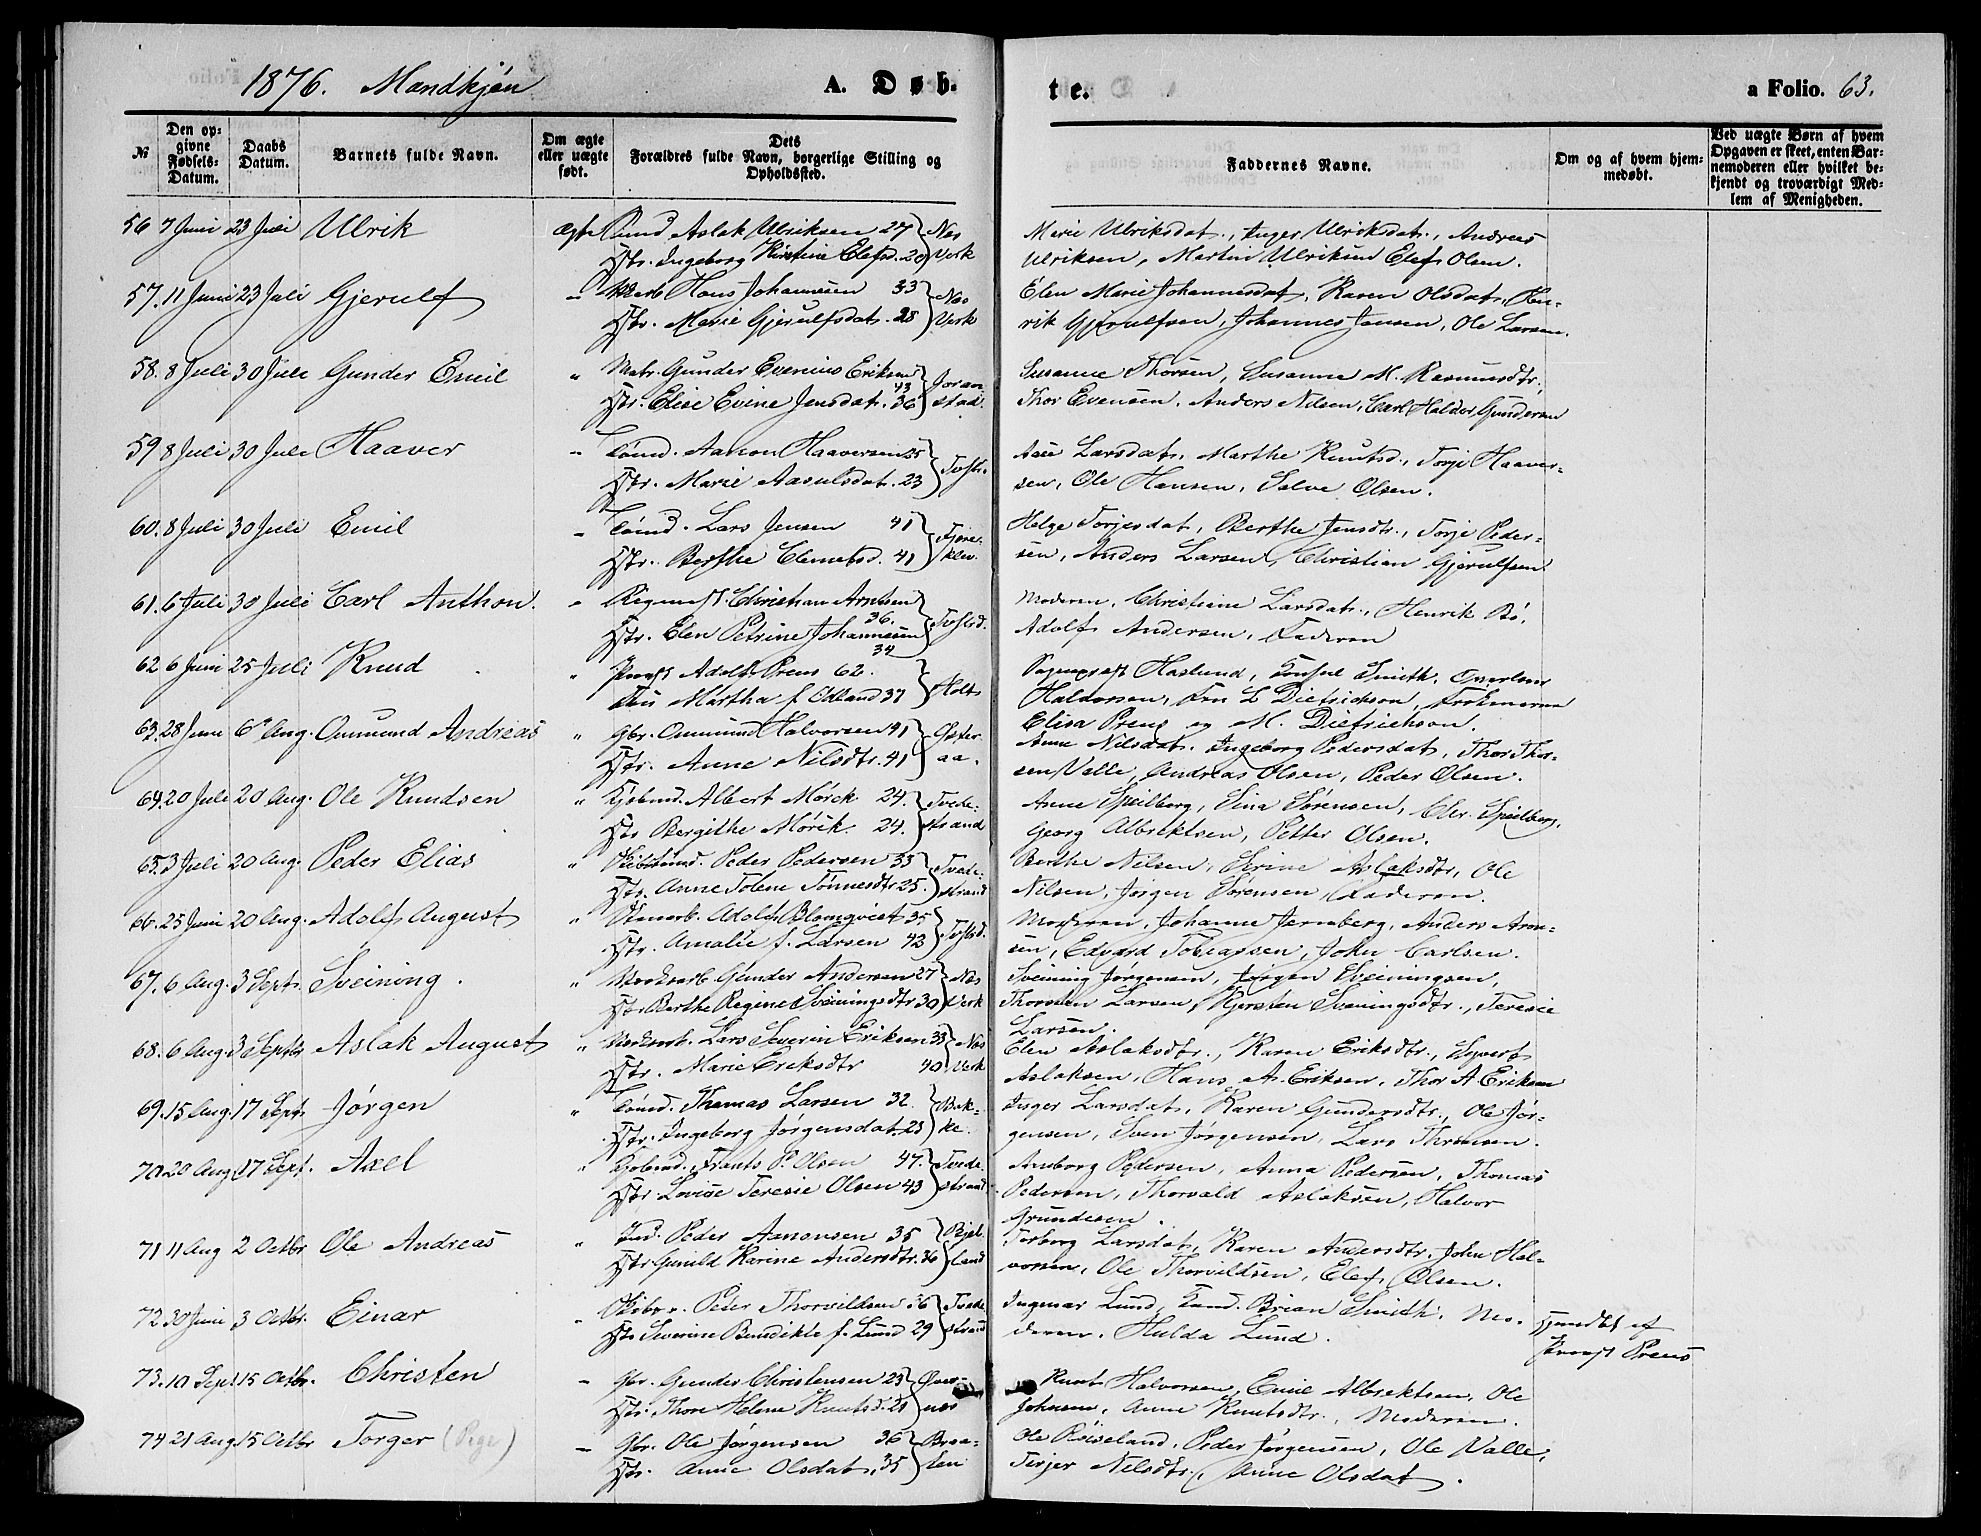 1876. Mandkjøn
A. Døb-
te.
a Folio. 63.
№
Den op-
givne
Fødsels-
Datum.
Daabs
Datum.
Barnets fulde Navn.
Om ægte
eller uægte
født.
Dets
Forældres fulde Navn, borgerlige Stilling og
Opholdssted.
Faddernes Navne.
Om og af hvem hjem-
medøbt.
Ved uægte Børn af hvem
Opgaven er skeet, enten Bar-
nemoderen eller hvilket be-
kjendt og troværdigt Med-
lem af Menigheden.
56 7 Juni 23 Juli Ulrik ægte Aslak Ulriksen 27 Næs
Hstr. Ingeborg Kirstine Elefsd. 20 Verk
Marie Ulriksdat., Inger Ulriksdat., Andreas
Ulriksen, Martin Ulriksen Elef Olsen.
57. 11 Juni 23 Juli Gjerulf " Hans Johannesen 33 Næs
Hstr. Marie Gjerulfsdat. 28 Verk
Elen Marie Johannesdat, Karen Olsdat, Hen-
rik Gjerulfsen, Johannes Jensen, Ole Larsen.
58. 8 Juli 30 Juli Gunder Emil " Matr. Gunder Evenius Eriksen 43 Joran-
Hstr. Elise Evine Jensdat. 36 stad.
Susanne Thorsen, Susanne M. Rasmusdtr.,
Thor Evensen, Anders Nilsen, Carl Haldor Gundersen
59 8 Juli 30 Juli Haaver " Tømd. Aanon Haaversen 25
Hstr. Marie Aasulsdat. 23
Larsdat. Marthe Knutsd., Torje Haaver-
sen, Ole Hansen, Salve Olsen.
60. 8 Juli 30 Juli Emil " Tømd. Lars Jensen 41 Fjære-
Hstr. Berthe Clemetsd. 41 klev.
Helge Torjesdat, Berthe Jensdtr., Torje Peder-
sen, Anders Larsen, Christian Gjerulfsen
61. 6 Juli 30 Juli Carl Anthon. " Christian Arntsen 36.
Hstr. Elen Petrine Johannesen 34
Moderen, Christiane Larsdat., Henrik Bø,
Adolf Andersen, Faderen
62 6 Juni 25 Juli Knud " Provst Adolf Preus 62. Holt
Fru Martha f. Odland 37
Haslund, Consul Smith,
Haldorsen, Fru L Dietrichson, Frøknerne
Elisa Preus og M. Dietrichson.
63. 28 Juni 6 Aug. Ommund Andreas " Gbr. Ommund Halvorsen 41 Øster-
Hstr. Anne Nilsdtr. 41 aa.
Anne Nilsdat. Ingeborg Pedersdat, Thor Thor-
sen Valle, Andreas Olsen, Peder Olsen.
64. 20 Juli 20 Aug. Ole Knudsen " Albert Mørck 24. Tvede-
Hstr Bergithe Mørck. 24. strand
Anne Speilberg, Sina Sørensen, Chr. Speilberg,
Georg Albrektsen, Petter Olsen.
65. 3 Juli 20 Aug. Peder Elias " Peder Pedersen 33 Tvede-
Hstr. Anne Tolene Tønnesdtr 25. strand
Berthe Nilsen, Serine Aslaksdtr, Ole
Nilsen, Jørgen Sørensen, Faderen.
66. 25 Juni 20 Aug. Adolf August " Adolf Blomqvist 35
Hstr. Amalie f. Larsen 42
Moderen, Johanne Jerneberg, Anders Aron-
sen, Edvard Tobiassen, John Carlsen.
67. 6 Aug. 3 Septr. Sveinung. " Gunder Andersen 27 Næs
Hstr Berthe Regine Sveinungsdtr 30 Verk
Sveinung Jørgensen, Jørgen Sveinungsen,
Thomas Larsen, Kjersten Sveinungsdtr., Teresie
Larsen.
68. 6 Aug 3 Septbr Aslak August " Lars Severin Eriksen 33 Næs
Hstr. Marie Eriksdtr 40 Verk
Elen Aslaksdtr., Karen Eriksdtr., Syvert
Aslaksen, Hans A. Eriksen, Thor A Eriksen
69. 15 Aug. 17 Sept. Jørgen " Tømd. Thomas Larsen 32 Bak-
Hstr. Ingeborg Jørgensdat. 23 ke.
Inger Larsdat, Karen Gundersdtr., Ole Jør-
gensen, Sven Jørgensen, Lars Thomsen.
70. 20 Aug. 17 Sept. Axel " Frants P. Olsen 47. Tvede-
Hstr. Lovise Teresie Olsen 43 strand
Amborg Pedersen, Anna Pedersen, Thomas
Pedersen, Thorvald Aslaksen, Halvor
Grundesen.
71 11 Aug 2 Octbr Ole Andreas " Ind. Peder Aanonsen 35 Bjel-
Hstr Gunild Karine Andersdtr. 36 land
Torborg Larsdat, Karen Andersdtr. John Hal-
vorsen, Ole Thorvildsen, Elef Olsen.
72. 30 Juni 3 Octbr. Einar " Peter Thorvildsen 36 Tvede
Hstr Severine Bendikte f. Lund 29 strand
Ingemar Lund, Cand. Brian Smith, Mo-
deren, Hulda Lund.
hjemdbt af
Provst Preus
73. 10 Sept 15 Octbr. Christen " Gbr. Gunder Christensen 23
Hstr. Thone Helene Knutsd. 28 næs
Knut Halvorsen, Emil Albrektsen, Ole
Johnsen, Anne Knutsdtr., Moderen.
74 21 Aug 15 Octbr Torger (Pige) " Gbr. Ole Jørgensen 36 Braa-
Hstr. Anne Olsdat. 35 ten
Ole Røiseland, Peder Jørgensen, Ole Valle,
Terjer Nilsdtr., Anne Olsdat.